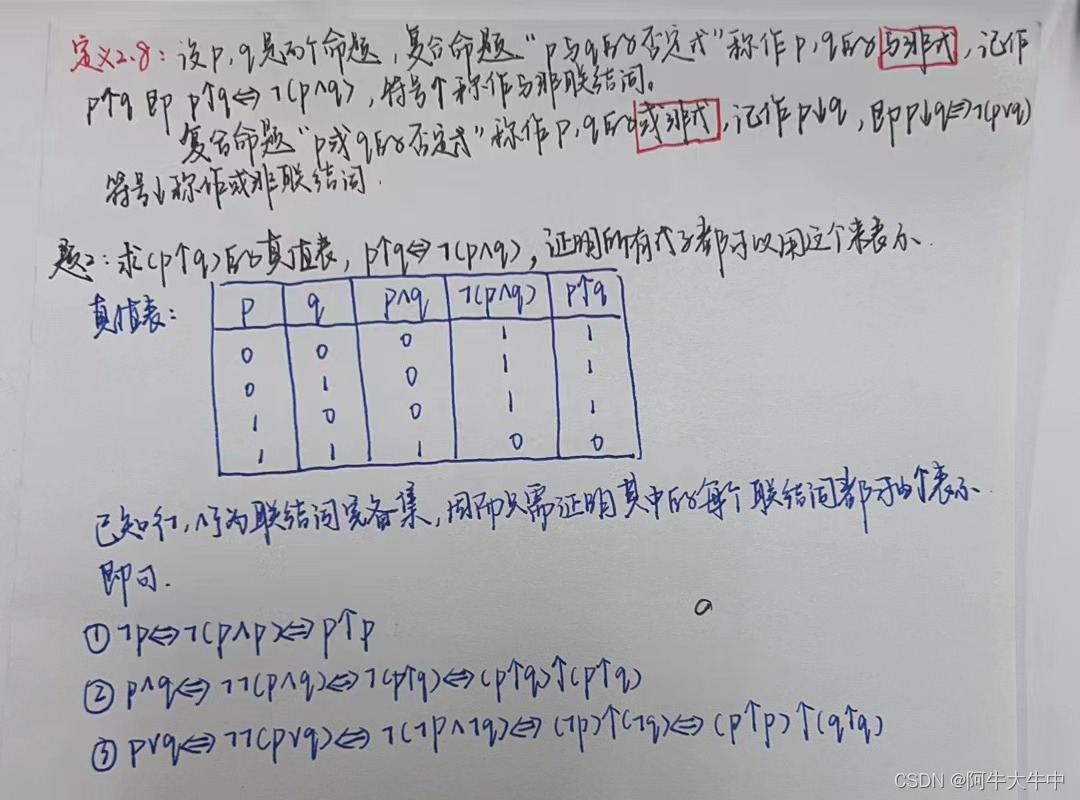 定义2.8：设p，q是两个命题，复合命题“p与q的否定式”称作p，q的与非式，记作
p↑q 即 p↑q⇔¬(p∧q)，符号↑称作与非联结词。
复合命题“p或q的否定式”称作p，q的或非式，记作p↓q，即p↓q⇔¬(p∨q)
符号↓称作或非联结词.
题2：求(p↑q)的真值表，p↑q⇔¬(p∧q)，证明所有式子都可以用这个来表示.
真值表：
p q p∧q ¬(p∧q) p↑q
0 0 0 1 1
0 1 0 1 1
1 0 0 1 1
1 1 1 0 0
已知{¬，∧}为联结词完备集，因而只需证明其中的每个联结词都可由↑表示
即可.
① ¬p⇔¬(p∧p)⇔p↑p
② p∧q⇔¬¬(p∧q)⇔¬(p↑q)⇔(p↑q)↑(p↑q)
③ p∨q⇔¬¬(p∨q)⇔¬(¬p∧¬q)⇔(¬p)↑(¬q)⇔(p↑p)↑(q↑q)
CSDN @阿牛大牛中